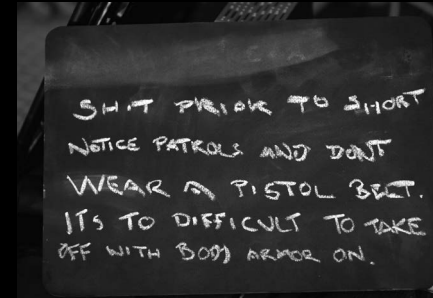 SHIT PRIOR TO SHORT
NOTICE PATROLS AND DONT
WEAR A PISTOL BELT.
ITS TO DIFFICULT TO TAKE
OFF WITH BODY ARMOR ON.